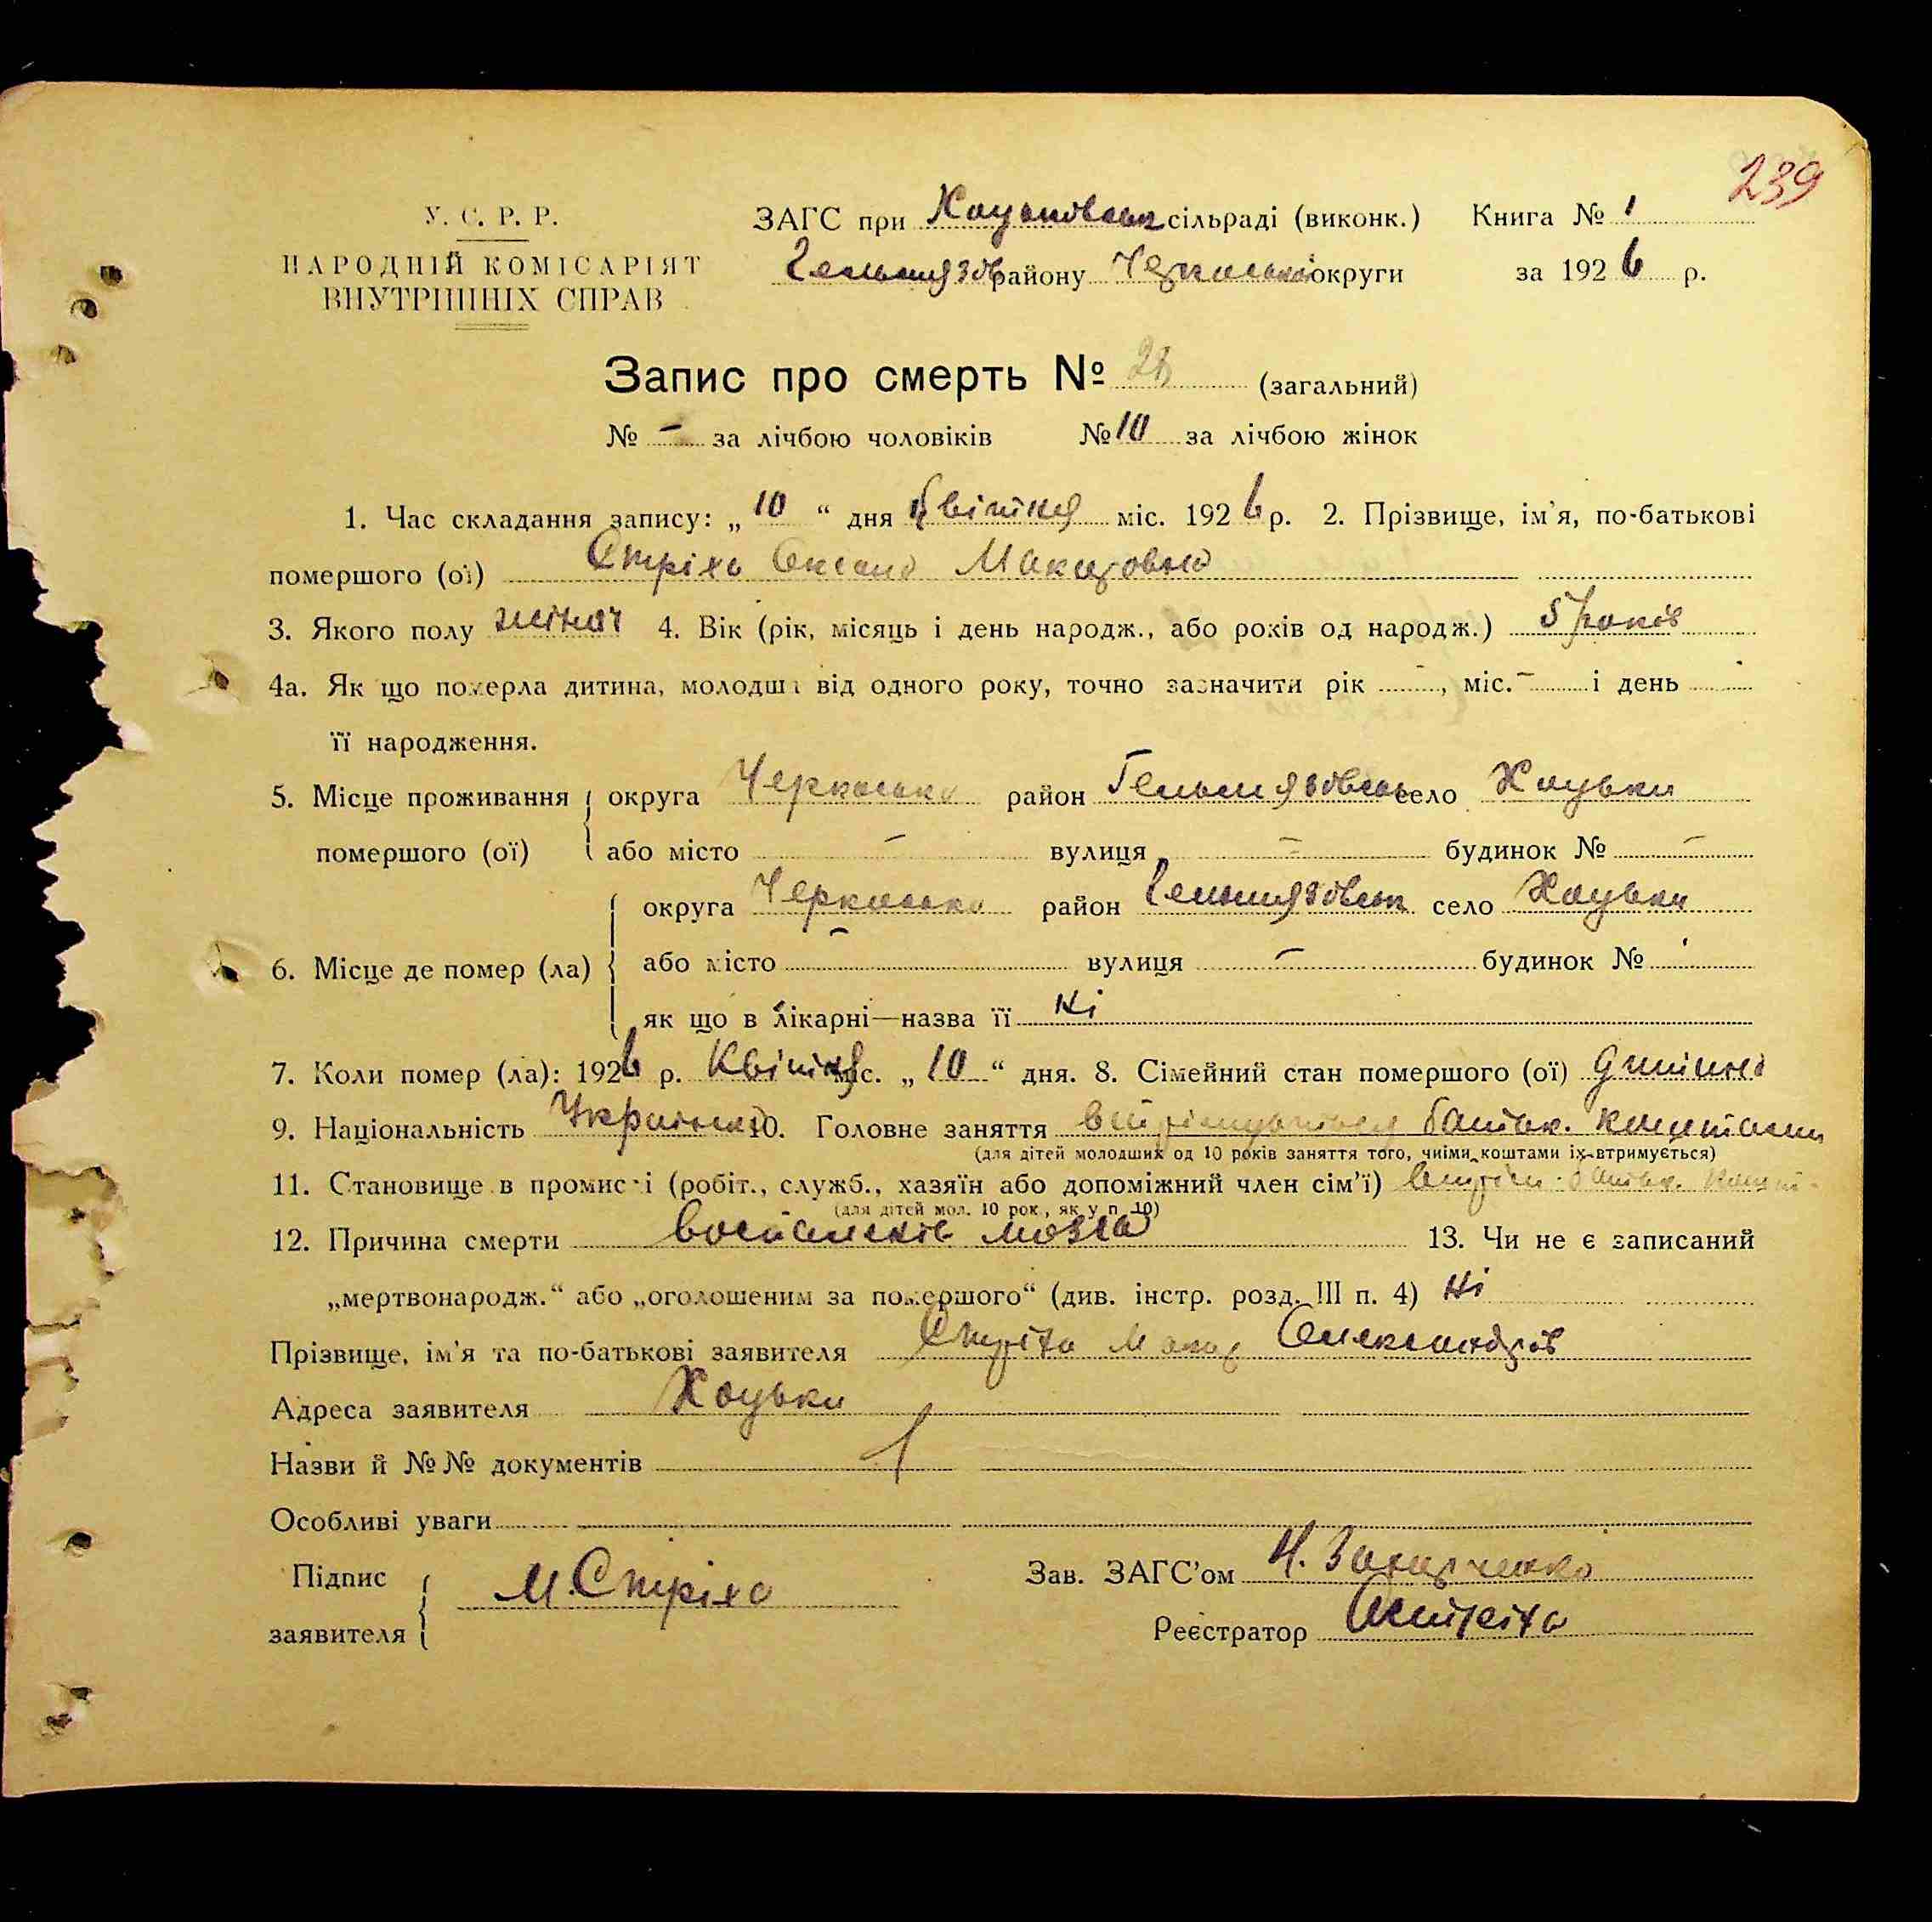 239
У. С. Р. Р.
НАРОДНІЙ КОМІСАРІЯТ
ВНУТРІШНІХ СПРАВ
ЗАГС при Хоцьківськ сільраді (виконк.) Книга № 1
Гельмязів району Черкаської округи за 1926 р.
Запис про смерть № 28 (загальний)
№ – за лічбою чоловіків № 10 за лічбою жінок
1. Час складання запису: „10“ дня Квітня міс. 1926 р. 2. Прізвище, ім'я, по-батькові
помершого (ої) Стріха Оксана Макаровна
3. Якого полу жіноч 4. Вік (рік, місяць і день народж., або років од народж.) 5 років
4а. Як що померла дитина, молодша від одного року, точно зазначити рік –, міс. – і день –
її народження.
5. Місце проживання помершого (ої) округа Черкаська район Гельмязівськ село Хоцьки
або місто – вулиця – будинок № –
6. Місце де помер (ла) округа Черкаська район Гельмязівськ село Хоцьки
або місто – вулиця – будинок № –
як що в лікарні—назва її Ні
7. Коли помер (ла): 1926 р. Квітня міс. „10“ дня. 8. Сімейний стан помершого (ої) дитина
9. Національність Українка 10. Головне заняття батьк. коштами
(для дітей молодших од 10 років заняття того, чиїми коштами їх втримується)
11. Становище в промислі (робіт., служб., хазяїн або допоміжний член сім'ї) батьк. кошт
(для дітей мол. 10 рок., як у п. 10)
12. Причина смерти мозга 13. Чи не є записаний
„мертвонародж.“ або „оголошеним за помершого“ (див. інстр. розд. III п. 4) Ні
Прізвище, ім'я та по-батькові заявителя Стріха Макар Олександрів
Адреса заявителя Хоцьки
Назви й №№ документів
Особливі уваги
Підпис заявителя М. Стріха
Зав. ЗАГС'ом
Реєстратор